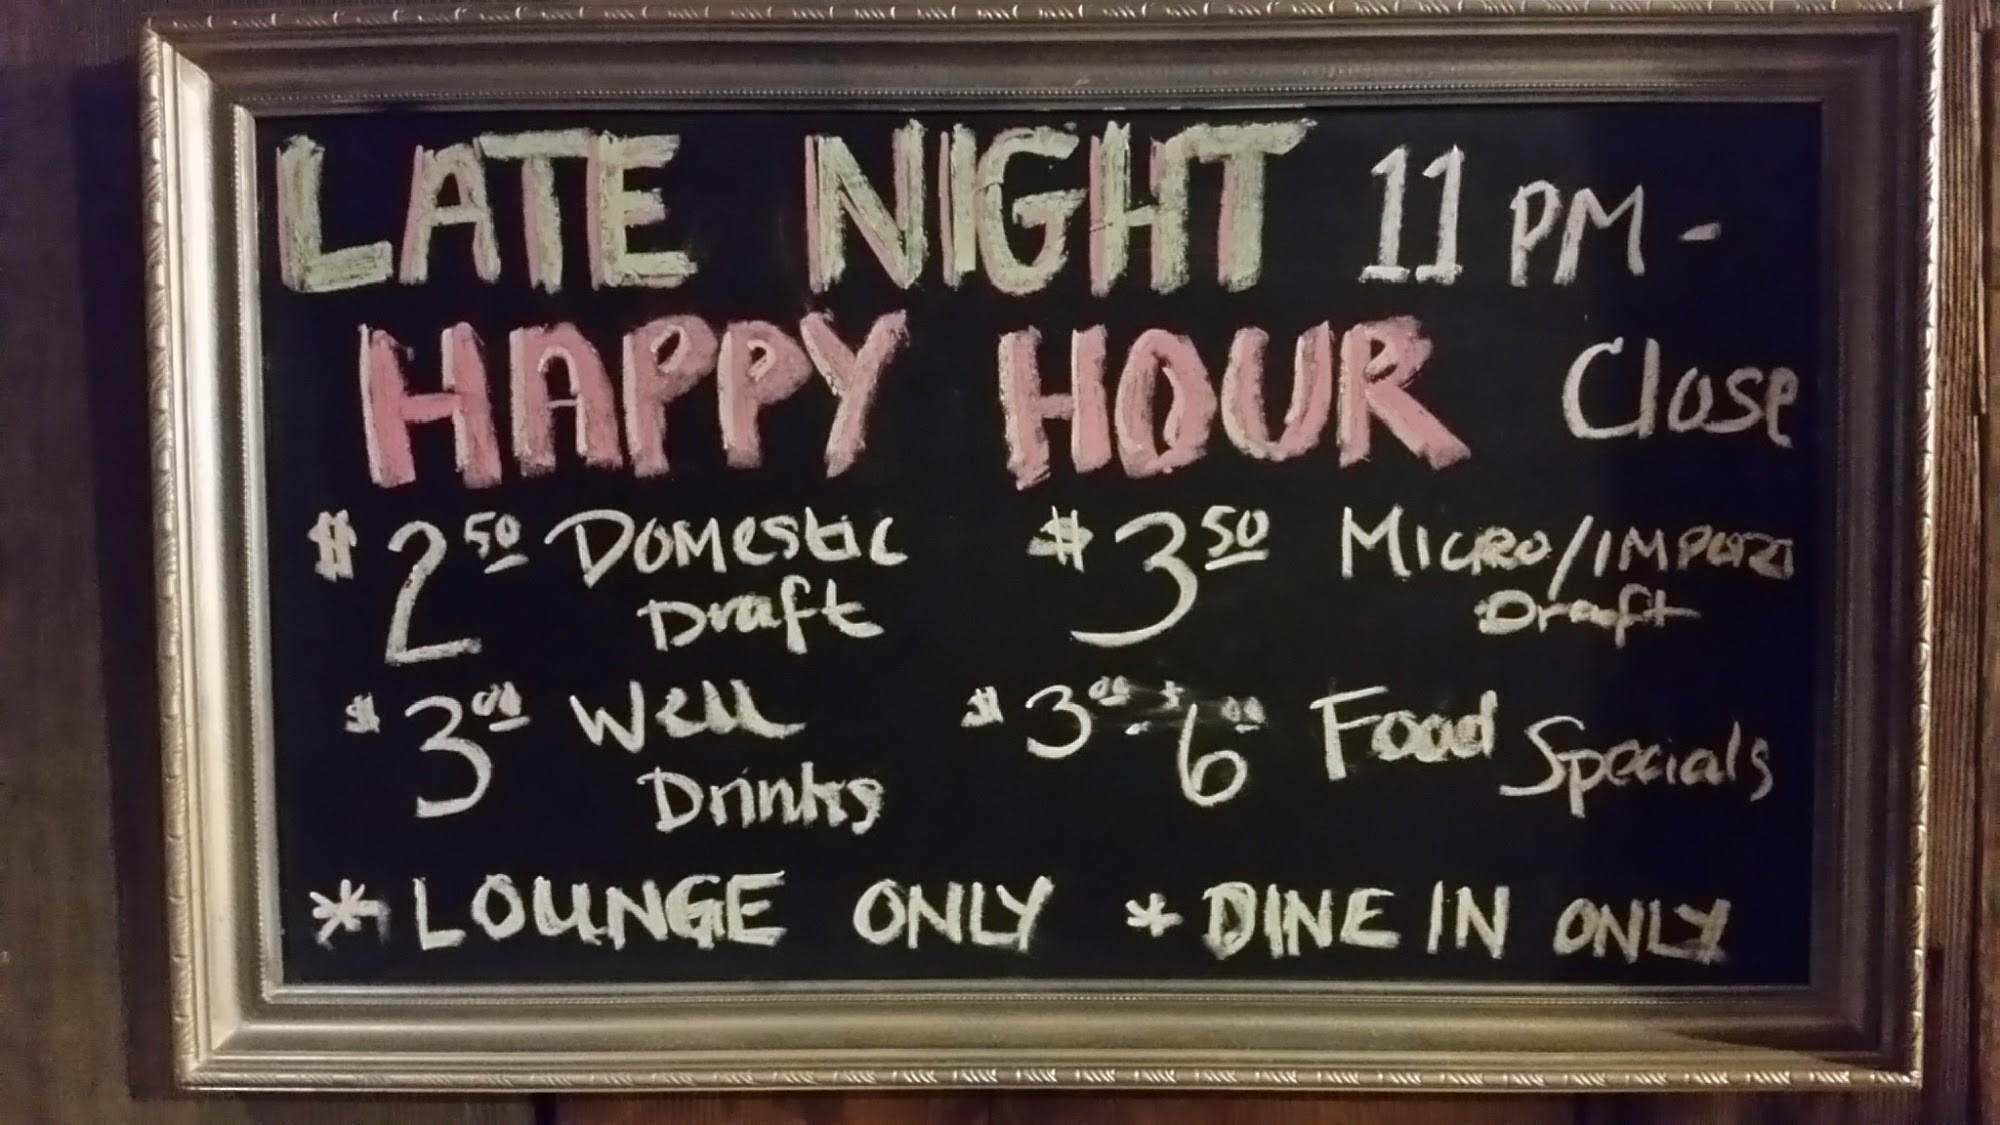 LATE NIGHT 11 PM -
HAPPY HOUR Close
$2.50 Domestic Draft
$3.50 MICRO/IMPORT Draft
$3.00 Well Drinks
$3.00 - $6.00 Food Specials
* LOUNGE ONLY * DINE IN ONLY